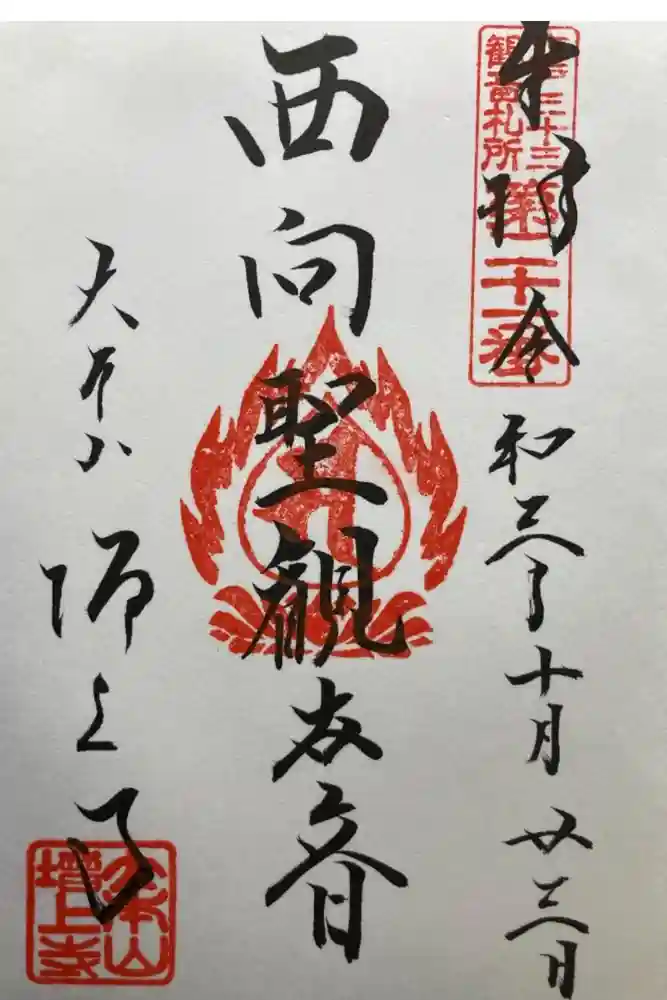 奉拝 令和三年十月廿三日
江戸三十三
観音札所
第二十一番
西向聖観世音
大本山 増上寺
大本山
増上寺